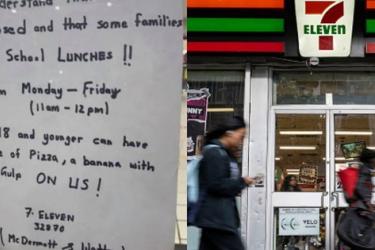 derstand
osed and that some families
School LUNCHES !!
Monday - Friday
(11am - 12pm)
18 and younger can have
of Pizza, a banana with
Gulp ON US !
7-ELEVEN
32870
(McDermott &
7
ELEVEN
NNY
VELO